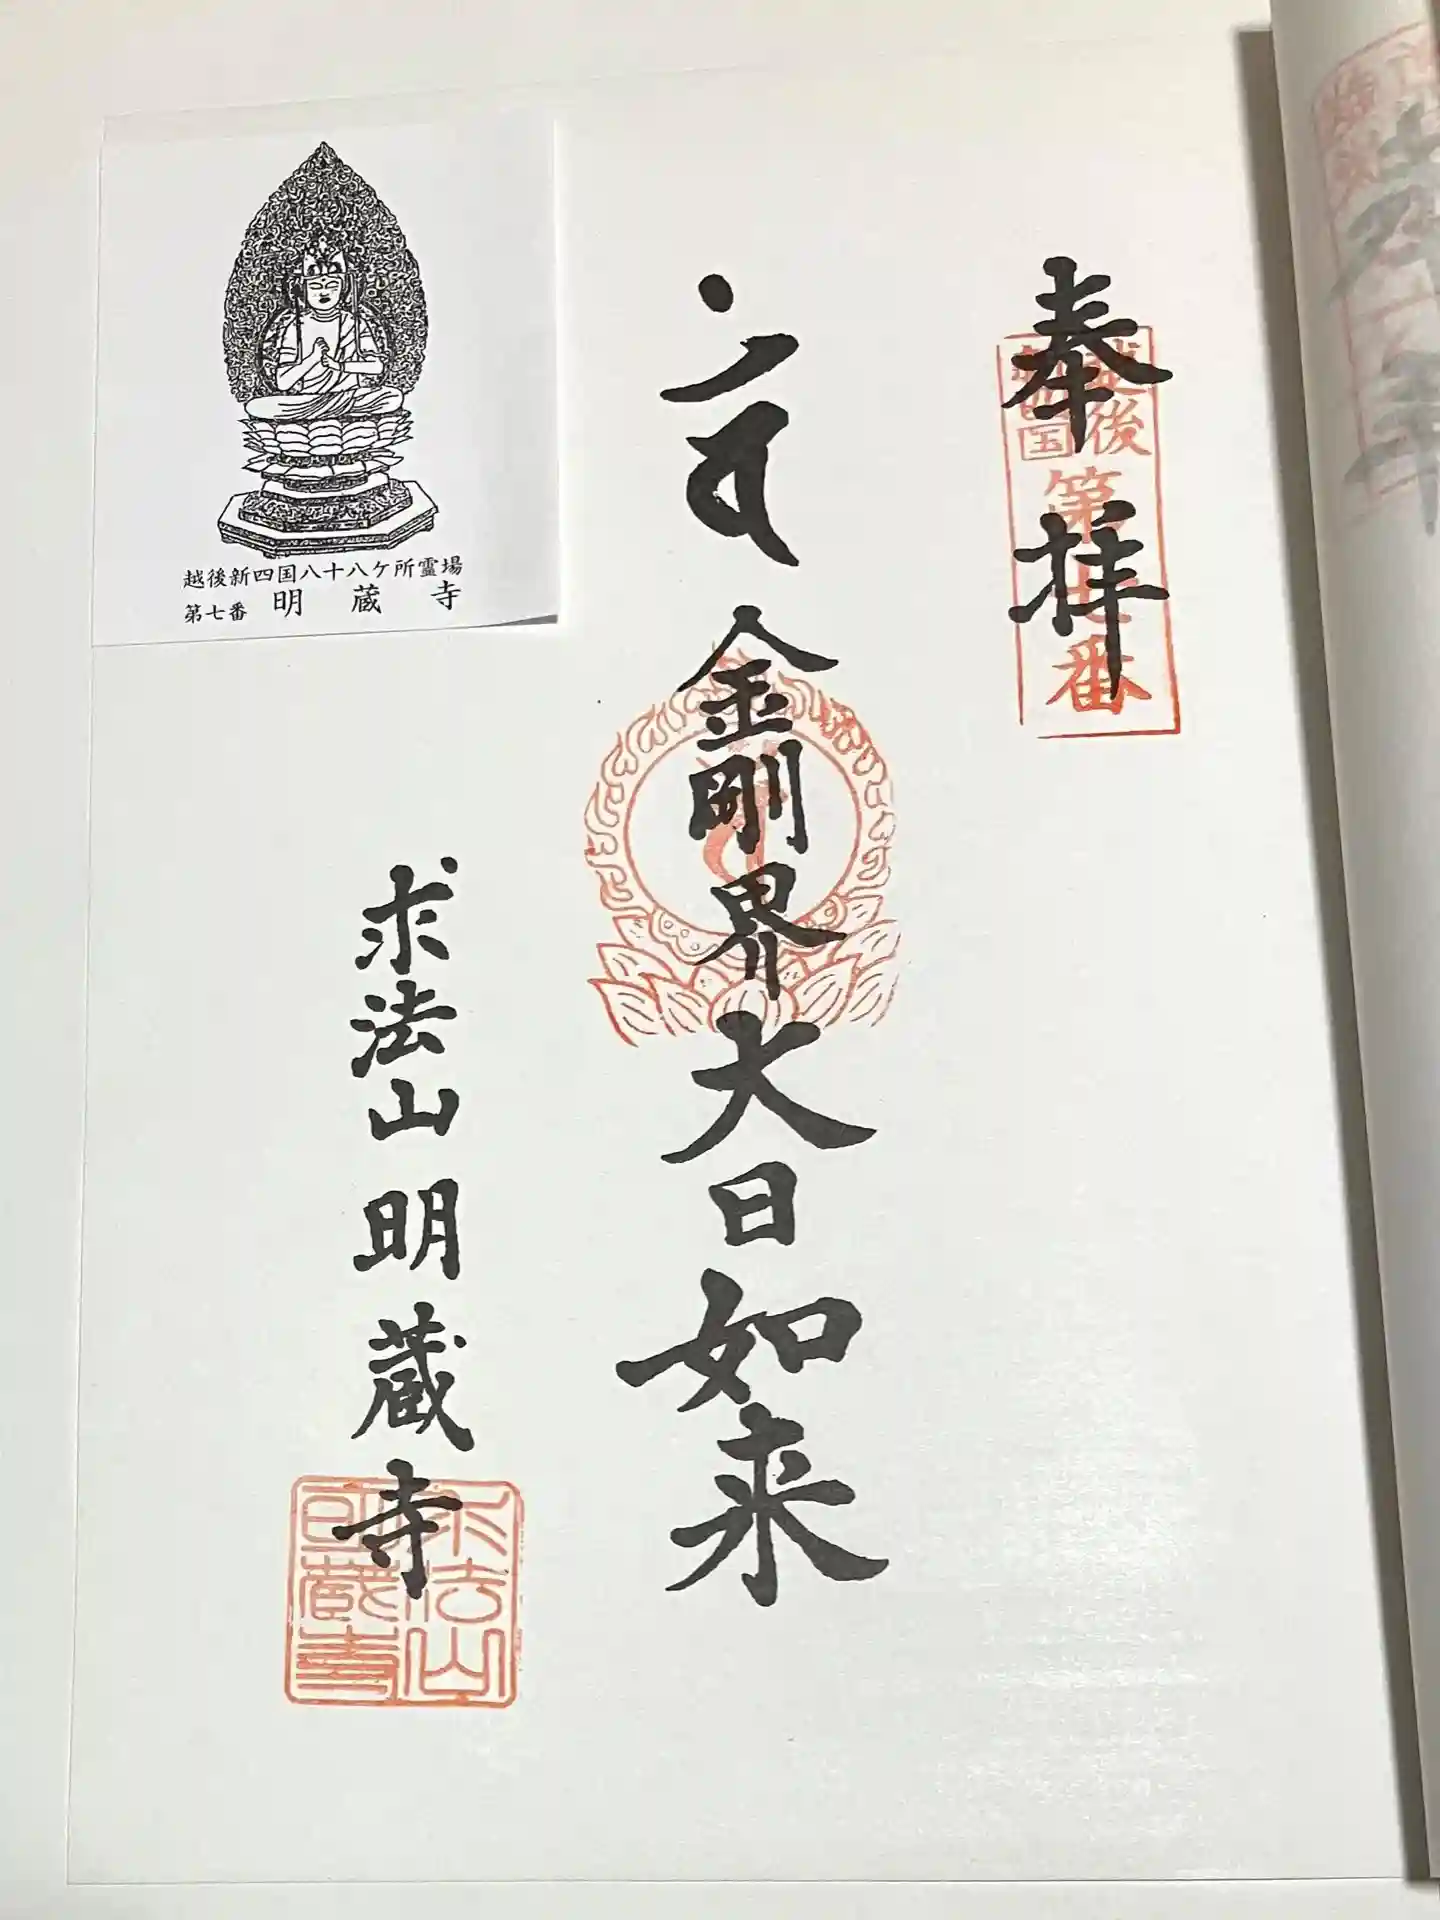 奉拝
越後
新四国
第七番
金剛界大日如来
求法山明蔵寺
求法山
明蔵寺
越後新四国八十八ケ所霊場
第七番 明蔵寺